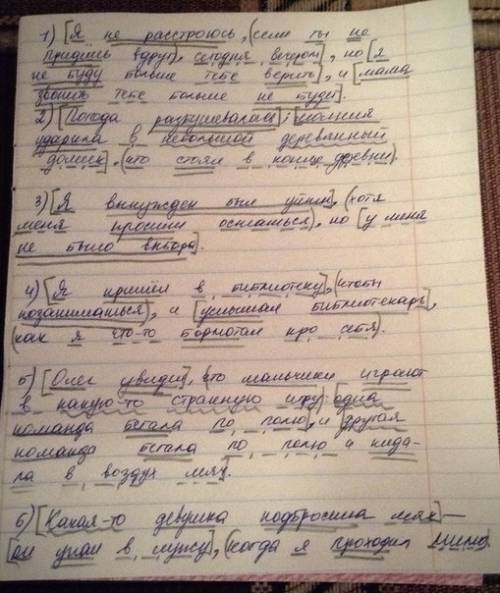 1) [Я не расстроюсь, (если ты не
придёшь вдруг), сегодня вечером], но [я
не буду больше тебе верить], и [мама
звонить тебе больше не будет].
2) [Погода разбушевалась]; [молния
ударила в небольшой деревянный
домик], (что стоял в конце деревни).
3) [Я вынужден был уйти], (хотя
меня просили остаться), но [у меня
не было выбора].
4) [Я пришёл в библиотеку], (чтобы
позаниматься), и [услышал библиотекарь],
(как я что-то бормотал про себя).
5) [Олег увидел], что мальчики играют
в какую-то странную игру: [одна
команда бегала по полю], и [другая
команда бегала по полю и кида-
ла в воздух мяч.
6) [Какая-то девушка подбросила мяч] —
[он упал в лужу], (когда я проходил мимо.